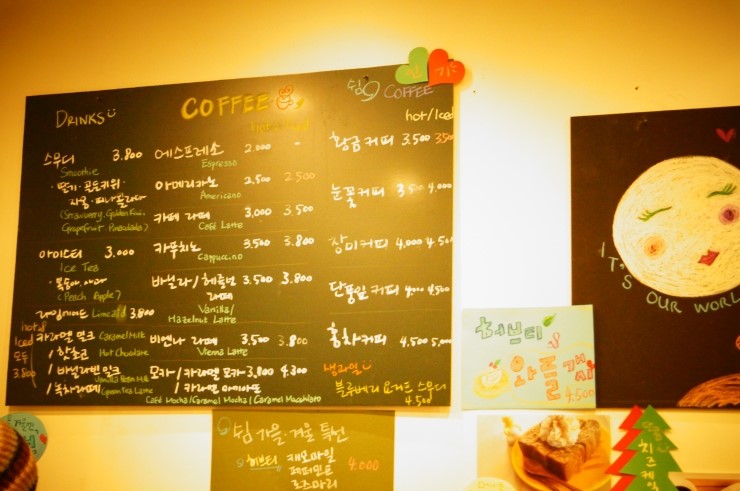 DRINKS
스무디 3.800
Smoothie
· 딸기 · 골든키위 ·
자몽 · 피나콜라다
(Strawberry, Golden Kiwi,
Grapefruit, Pinacolada)
아이스티 3.000
Ice Tea
· 복숭아, 애플
(Peach, Apple)
라임에이드 Limeade 3.800
hot &
Iced
모두
3.800
카라멜 밀크 Caramel Milk
/ 핫초코 Hot Chocolate
/ 바닐라빈밀크 Vanilla Bean Milk
/ 녹차라떼 Green Tea Latte
COFFEE
에스프레소 2.000 -
Espresso
아메리카노 2,500 2500
Americano
카페 라떼 3,000 3.500
Café Latte
카푸치노 3.500 3.800
Cappuccino
바닐라/헤즐넛 3.500 3.800
라떼
Vanilla/
Hazelnut Latte
비엔나 라떼 3,500 3.800
Vienna Latte
모카/카라멜 모카 3,800 4.300
/ 카라멜 마끼아또
Café Mocha/Caramel Mocha/Caramel Macchiato
인 기
쉼 COFFEE
hot/Iced
황금커피 3.500 3500
눈꽃커피 3.500 4,000
장미커피 4,000 4.500
단풍잎커피 4,000 4.500
홍차커피 4.500 5,000
생과일
블루베리 요거트 스무디
4.500
쉼 가을 · 겨울 특선
허브티
캐모마일
페퍼민트
로즈마리
4.000
허브티
4500
IT'S OUR WORL
치즈케익